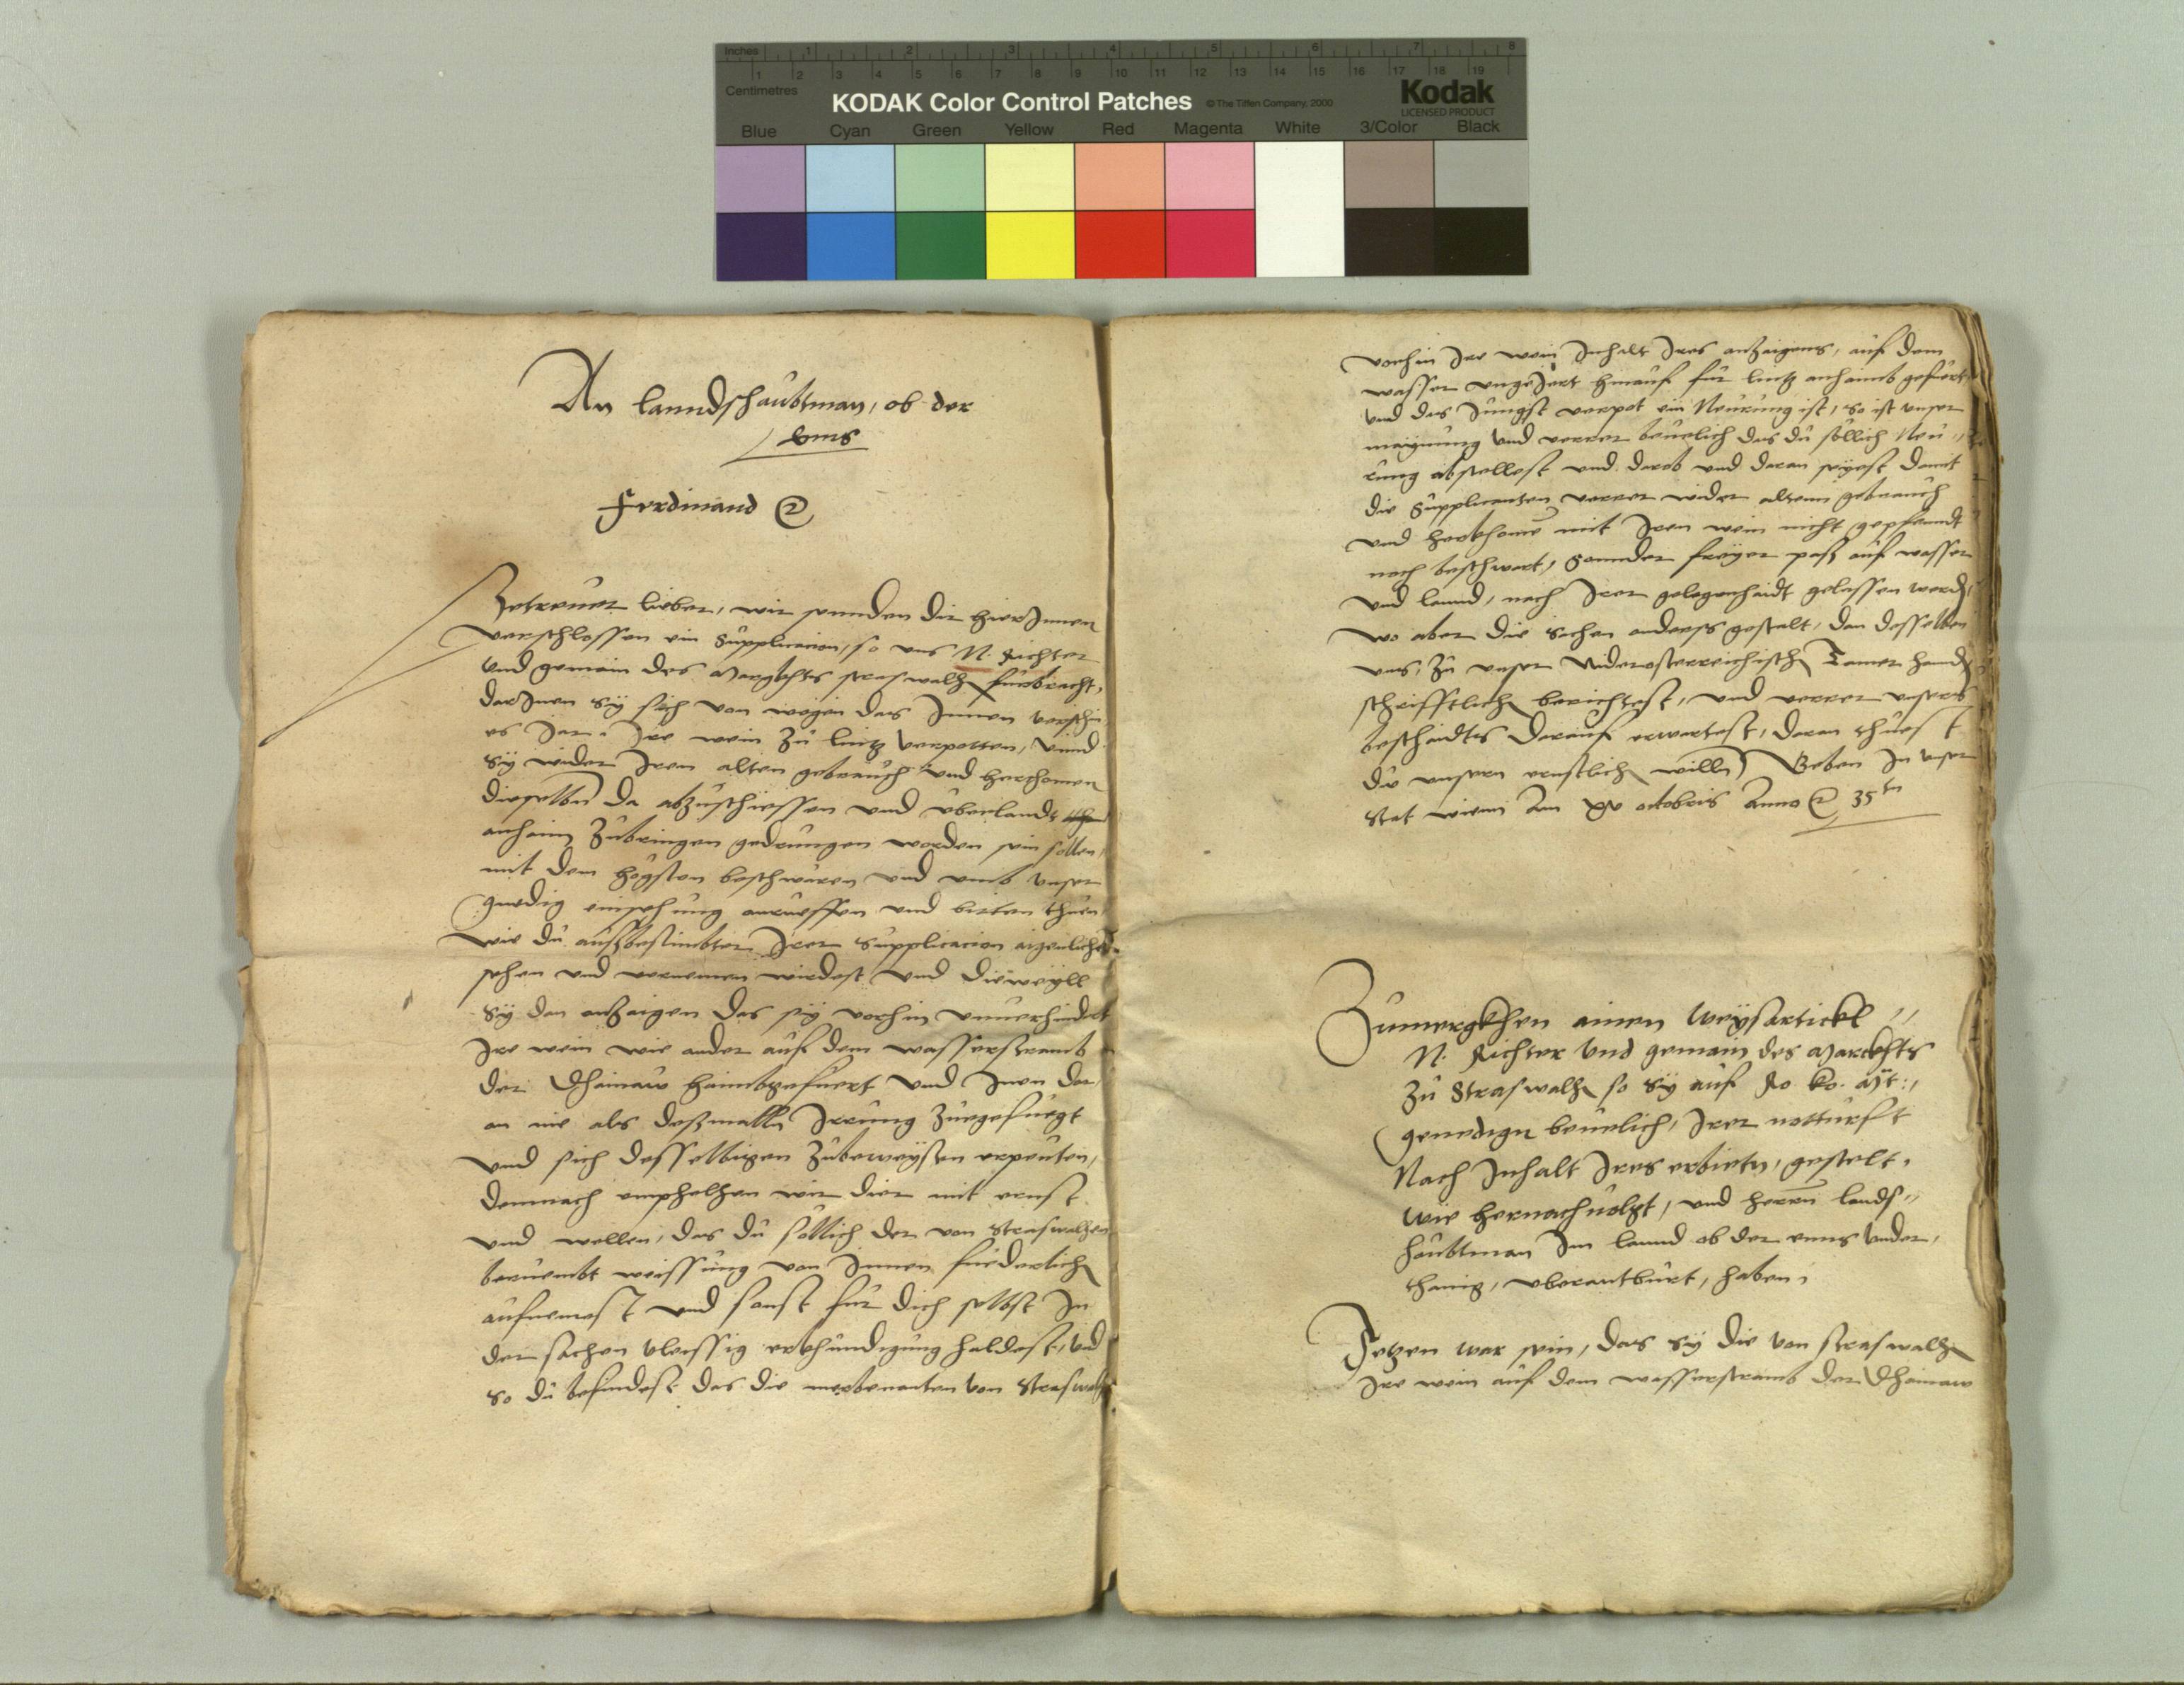 Inches 1 2 3 4 5 6 7 8
Centimetres 1 2 3 4 5 6 7 8 9 10 11 12 13 14 15 16 17 18 19
KODAK Color Control Patches © The Tiffen Company, 2000 Kodak
LICENSED PRODUCT
Blue Cyan Green Yellow Red Magenta White 3/Color Black
An lanndshaubtman, ob der
Enns
Ferdinand
Getrewer lieber, wir sennden dir hierInnen
verschlossen ein Supplicacion, so uns N. Richter
und gemain des Margkhts straswalh furbracht,
darInen sy sich von wegen das Innen verschin
es Jar Ire wein zu lintz verpotten, unnd
sy wider Iren alten gebrauch und herchomen
dieselbn da abzuschiessen und uberlandt
anhaim zubringen gedrungen worden sein sollen,
mit dem hogsten beschwären und umb unser
gnedig einsehung anrueffen und bitten thuen
wie du aussbestimbter Irer Supplicacion aigenlicher
sehen und vernemen wirdest und dieweyll
sy dan anzaigen das sy vorhin unverhindert
Ire wein wie ander auf dem wasserstramb
der Thainaw haimbgefuert und Inen dar
an nie als desmalln Irrung zuegefuegt
und sich desselbigen zubeweysen erpeuten,
demnach emphelhen wir dier mit ernst
und wellen, das du sollich der von Straswalhen
beruembt weissung von Innen furderlich
aufnemest und sonst fur dich selbst In
der sachen vleissig erkhundigung haldest, und
so du befindest das die merbenanten von Straswalh
vorhin Ire wein Inhalt Ires anzaigens, auf dem
wasser ungeJert hinauf fur lintz anhaimb gefuert
und das Jungst verpot ein Neurung ist, so ist unser
maynung und verrer bevelich das du sollich Neu„
rung abstellest und darob und daran seyest damit
die Supplicanten verrer wider altenn gebrauch
und herkhome mit Iren wein nicht gepfenndt
noch beschwart, Sonnder freyer pass auf wasser
und lannd, nach Irer gelegenhaidt gelassen werd,
wo aber die sachen anderss gestalt, dan desselben
uns, zu unser Niderosterreichisch Camer hand
schrifftlich berichtest, und verrer unsers
beschaidts darauf erwartest, daran thuest
du unsern ernstlich willn Geben In unser
Stat wienn am xv octobris Anno 35tn
Zumergkhen ainen Weysartickl„
N. Richter und gemain des Marckhts
zu Straswalh so sy auf Ro ko. Mt:,
genedign bevelich, Irer notturft
Nach Inhalt Ires erbietn, gestelt,
wie hernachvolgt, und herrn lands„
haubtman Im lannd ob der enns under„
thanig, uberantburt, haben,
Setzen war sein, das sy die von straswalh
Ire wein auf dem wasserstramb der Thainaw